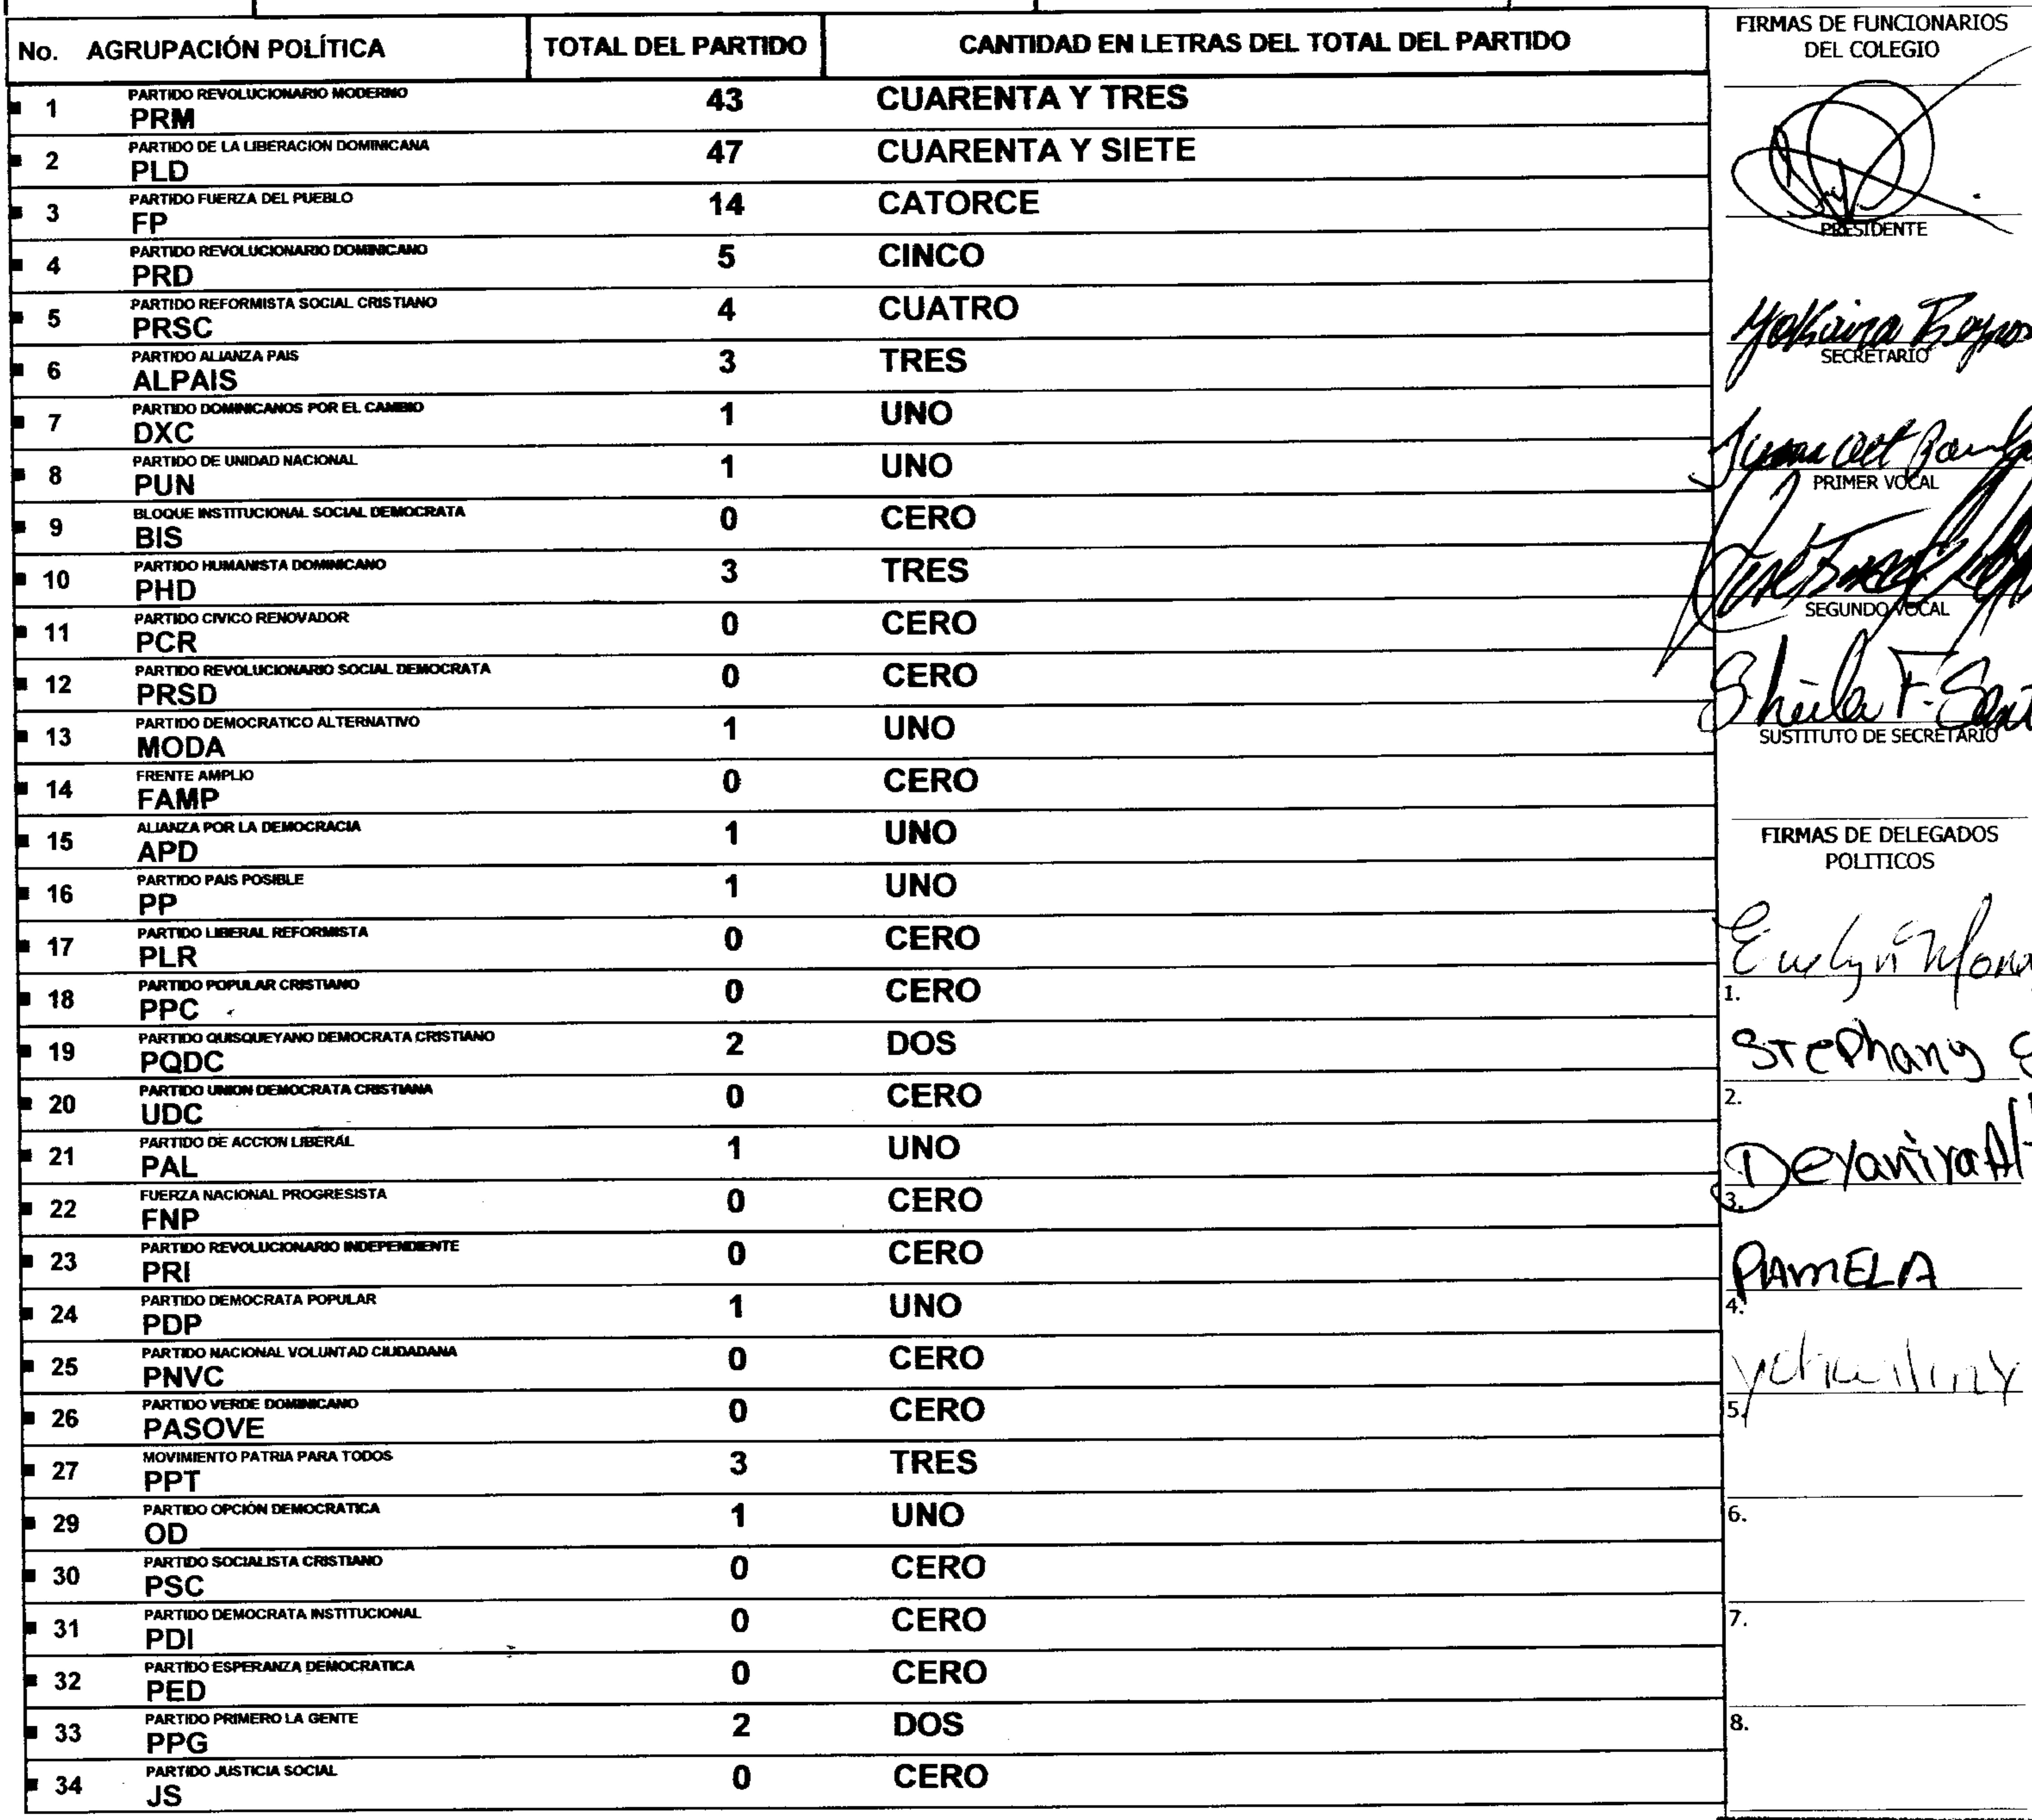 No. AGRUPACIÓN POLÍTICA TOTAL DEL PARTIDO CANTIDAD EN LETRAS DEL TOTAL DEL PARTIDO
1 PARTIDO REVOLUCIONARIO MODERNO 43 CUARENTA Y TRES
PRM
2 PARTIDO DE LA LIBERACION DOMINICANA 47 CUARENTA Y SIETE
PLD
3 PARTIDO FUERZA DEL PUEBLO 14 CATORCE
FP
4 PARTIDO REVOLUCIONARIO DOMINICANO 5 CINCO
PRD
5 PARTIDO REFORMISTA SOCIAL CRISTIANO 4 CUATRO
PRSC
6 PARTIDO ALIANZA PAIS 3 TRES
ALPAIS
7 PARTIDO DOMINICANOS POR EL CAMBIO 1 UNO
DXC
8 PARTIDO DE UNIDAD NACIONAL 1 UNO
PUN
9 BLOQUE INSTITUCIONAL SOCIAL DEMOCRATA 0 CERO
BIS
10 PARTIDO HUMANISTA DOMINICANO 3 TRES
PHD
11 PARTIDO CIVICO RENOVADOR 0 CERO
PCR
12 PARTIDO REVOLUCIONARIO SOCIAL DEMOCRATA 0 CERO
PRSD
13 PARTIDO DEMOCRATICO ALTERNATIVO 1 UNO
MODA
14 FRENTE AMPLIO 0 CERO
FAMP
15 ALIANZA POR LA DEMOCRACIA 1 UNO
APD
16 PARTIDO PAIS POSIBLE 1 UNO
PP
17 PARTIDO LIBERAL REFORMISTA 0 CERO
PLR
18 PARTIDO POPULAR CRISTIANO 0 CERO
PPC
19 PARTIDO QUISQUEYANO DEMOCRATA CRISTIANO 2 DOS
PQDC
20 PARTIDO UNION DEMOCRATA CRISTIANA 0 CERO
UDC
21 PARTIDO DE ACCION LIBERAL 1 UNO
PAL
22 FUERZA NACIONAL PROGRESISTA 0 CERO
FNP
23 PARTIDO REVOLUCIONARIO INDEPENDIENTE 0 CERO
PRI
24 PARTIDO DEMOCRATA POPULAR 1 UNO
PDP
25 PARTIDO NACIONAL VOLUNTAD CIUDADANA 0 CERO
PNVC
26 PARTIDO VERDE DOMINICANO 0 CERO
PASOVE
27 MOVIMIENTO PATRIA PARA TODOS 3 TRES
PPT
29 PARTIDO OPCIÓN DEMOCRATICA 1 UNO
OD
30 PARTIDO SOCIALISTA CRISTIANO 0 CERO
PSC
31 PARTIDO DEMOCRATA INSTITUCIONAL 0 CERO
PDI
32 PARTIDO ESPERANZA DEMOCRATICA 0 CERO
PED
33 PARTIDO PRIMERO LA GENTE 2 DOS
PPG
34 PARTIDO JUSTICIA SOCIAL 0 CERO
JS
FIRMAS DE FUNCIONARIOS
DEL COLEGIO
PRESIDENTE
SECRETARIO
PRIMER VOCAL
SEGUNDO VOCAL
Sheila F.
SUSTITUTO DE SECRETARIO
FIRMAS DE DELEGADOS
POLITICOS
Evelyn
1.
Stephany
2.
Deyanira
3.
PAMELA
4.
5.
6.
7.
8.